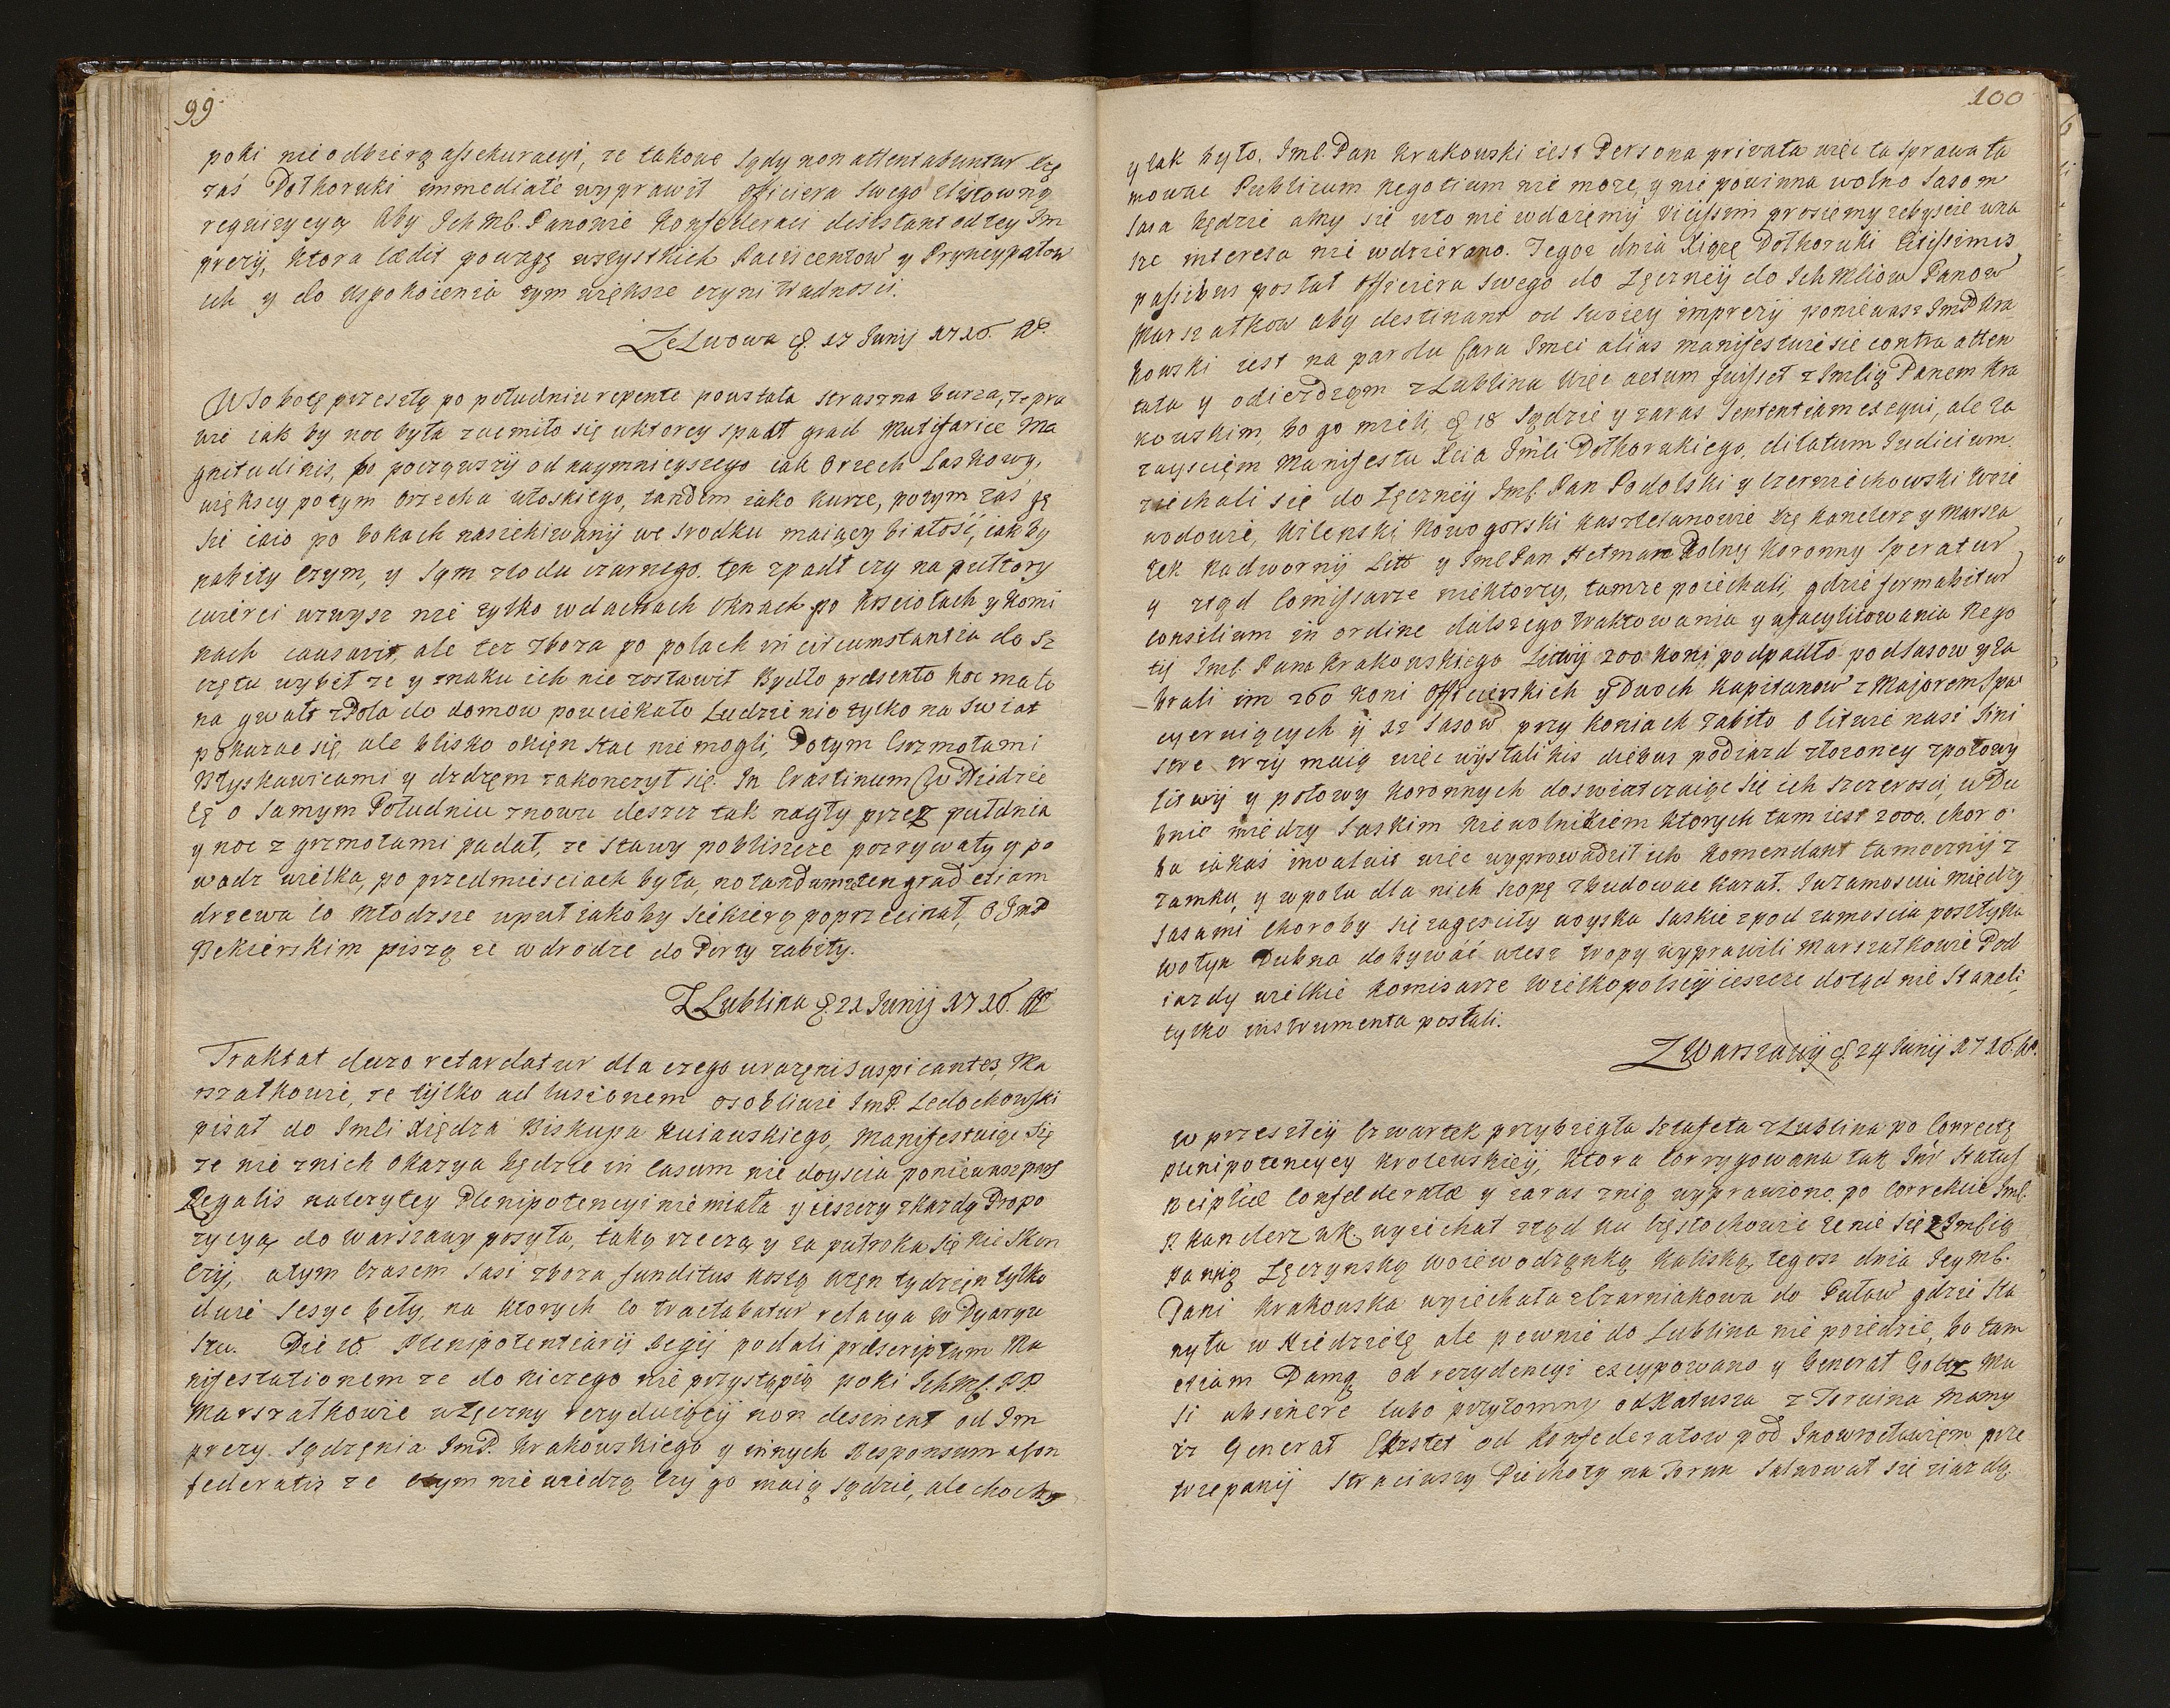 99
poki nie odbiorą assekuracyi, że takowe sądy non attentabuntur
zaś Dołhoruki immediate wyprawił officiera swego z listowną
requizycyą aby Ich Mć. Panowie Konfederaci desistant od tey Im
prezy, ktora lædit powagę wszystkich Paciscentow y Pryncypałow
ich y do uspokoienia tym większe czyni trudnosci.
Ze Lwowa d. 17 Junij 1716. Ao.
W Sobotę przeszłą po południu repente powstała straszna burza, że pra
wie iak by noc była zacmiło się w ktorey spadł grad multifariæ Ma
gnitudinis, bo począwszy od naymnieyszego iak orzech Laskowy,
większy potym orzecha włoskiego, tandem iako kurze, potym zaś gę
sie iaio po bokach nasiekiwany we srodku maiący białość, iakby
nabity czym, y sam z lodu czarnego. ten spadł czy na pułtory
cwierci wzwysz nie tylko w dachach oknach po kosciołach y komi
nach causavit, ale też zboża po polach in circumstantia do sz
czętu wybił że y znaku ich nie zostawił Bydło præsento hoc malo
na gwałt z Pola do domow pouciekało Ludzie nie tylko na Swiat
pokazac się ale blisko okien stac nie mogli, Potym Grzmotami
Błyskawicami y dżdżem zakonczył się. In Crastinum w Niedzie
lę o samym Południu znowu deszcz tak nagły przez pułdnia
y noc z grzmotami padał, że stawy poblisze pozrywały y po
wodz wielka, po przedmiesciach była, notandum że ten grad etiam
drzewa co młodsze uput iakoby siekierą poprzecinał, o ImP
Bekierskim piszą że w drodze do Perzy zabity.
Z Lublina d. 21 Junij 1716. Ao
Traktat duro retardatur dla czego urażeni suspicantes Ma
rszałkowie, że tylko ad lusionem osobliwie ImP. Ledochowski
pisał do Imści Xiędza Biskupa Kuiawskiego, Manifestuiąc się
że nie z nich okazya będzie in casum nie doyscia poniewasz pars
Regalis należytey Plenipotencyi nie miała y ieszczy z każdą Propo
zycyą do Warszawy posyła, taką rzeczą y za pułroka się nie skon
czy, a tym czasem Sasi zboża funditus koszą. Ten tydzien tylko
dwie Sesye beły, na ktorych co tractabatur relacya w Dyaryu
szu. Die 18. Plenipotentiarij Regij podali præscriptum Ma
nifestationem że do niczego nie przystąpią poki Ich Mć. PP.
Marszałkowie w Łęczny rezyduiący non desinent od Im
prezy sądzenia ImP. Krakowskiego y innych Responsum a Con
federatis że o tym nie wiedzą czy go maią sądzic, ale chocby
100
y tak było, Imć. Pan Krakowski iest Persona privata więc ta sprawa ta
mowac Publicum Negotium nie może, y nie powinna wolno Sasom
Sasa będzie a my się w to nie wdaiemy vicissim prosiemy żebyscie w na
sze interesa nie wdzierano. Tegoż dnia Xiąże Dołhoruki citissimis
passibus posłał officiera swego do Łęczney do Ich Mściow Panow
Marszałkow aby destinant od swoiey imprezy poniewasz ImP Kra
kowski iest na parolu Cara Imci alias manifestuie się contra atten
tata y odiezdzam z Lublina Więc actum fuisset z Imścią Panem Kra
kowskim, bo go mieli d 18 sądzic y zaras Sententiam exequi, ale za
zaysciem Manifestu Xcia Imści Dołhorukiego, dilatum Judicium.
ziechali się do Łęczney Imć. Pan Podolski y Czerniechowski Woie
wodowie, Wilenski Nowogorski Kasztelanowie Xże Kanclerz y Marsza
łek Nadworny Litt y Imć Pan Hetman Polny Koronny Speratur
y ztąd Comissarze niektorzy, tamże poiechali, gdzie formabitur
consilium in ordine dalszego traktowania y ufacylitowania Nego
tij Imć. Pana Krakowskiego Litwy 200 koni podpadło pod Sasow y za
brali im 260 koni officierskich y dwoch Kapitanow z Majorem Spa
cyeruiących y 12 Sasow przy koniach zabito O Litwie nasi sini
stre trzymaią więc wysłali his diebus podiazd złozoney z połowy
Litwy y połowy Koronnych doswiatczaiąc się ich szczerosci, w Du
bnie między Saskim Niewolnikiem ktorych tam iest 2000. choro
ba iakaś invaluit więc wyprowadził ich Komendant tameczny z
zamku, y w polu dla nich szopę zbudowac kazał. Zazamosciu między
Sasami choroby się zagęsciły woyska Saskie z pod zamoscia poszły na
wołyn Dubna dobywać wtesz tropy wyprawili Marszałkowie Pod
iazdy wielkie Komisarze Wielkopolscy ieszcze dotąd nie staneli,
tylko instrumenta posłali.
Z Warszawy d 24 Junij 1716. Ao.
W przeszły Czwartek przybiegła sztafeta z Lublina po Correctę
plenipotencyey Krolewskiey, ktora corrygowana tak Imć Status
Reiplicæ Confæderatæ y zaras z nią wyprawiono. po Correkcie Imć.
P. Kanclerz WK. wyiechał ztąd ku Częstochowie żenic się z Imścią
Panną Łęczynską woiewodzanką Kaliską, tegosz dnia Ieymć.
Pani Krakowska wyiechała z Czarniakowa do Puław gdzie sta
nyła w Niedzielę ale pewnie do Lublina nie poiedzie, bo tam
etiam Damę od rezydencyi excypowano y Generał Goltz Ma
si absinere lubo przytomny od Ratusza z Torunia mamy
iż Generał Eksztet od Konfederatow pod Inowrocławiem prze
trzepany straciwszy Piechotę na Torun salwował się z iazdą.